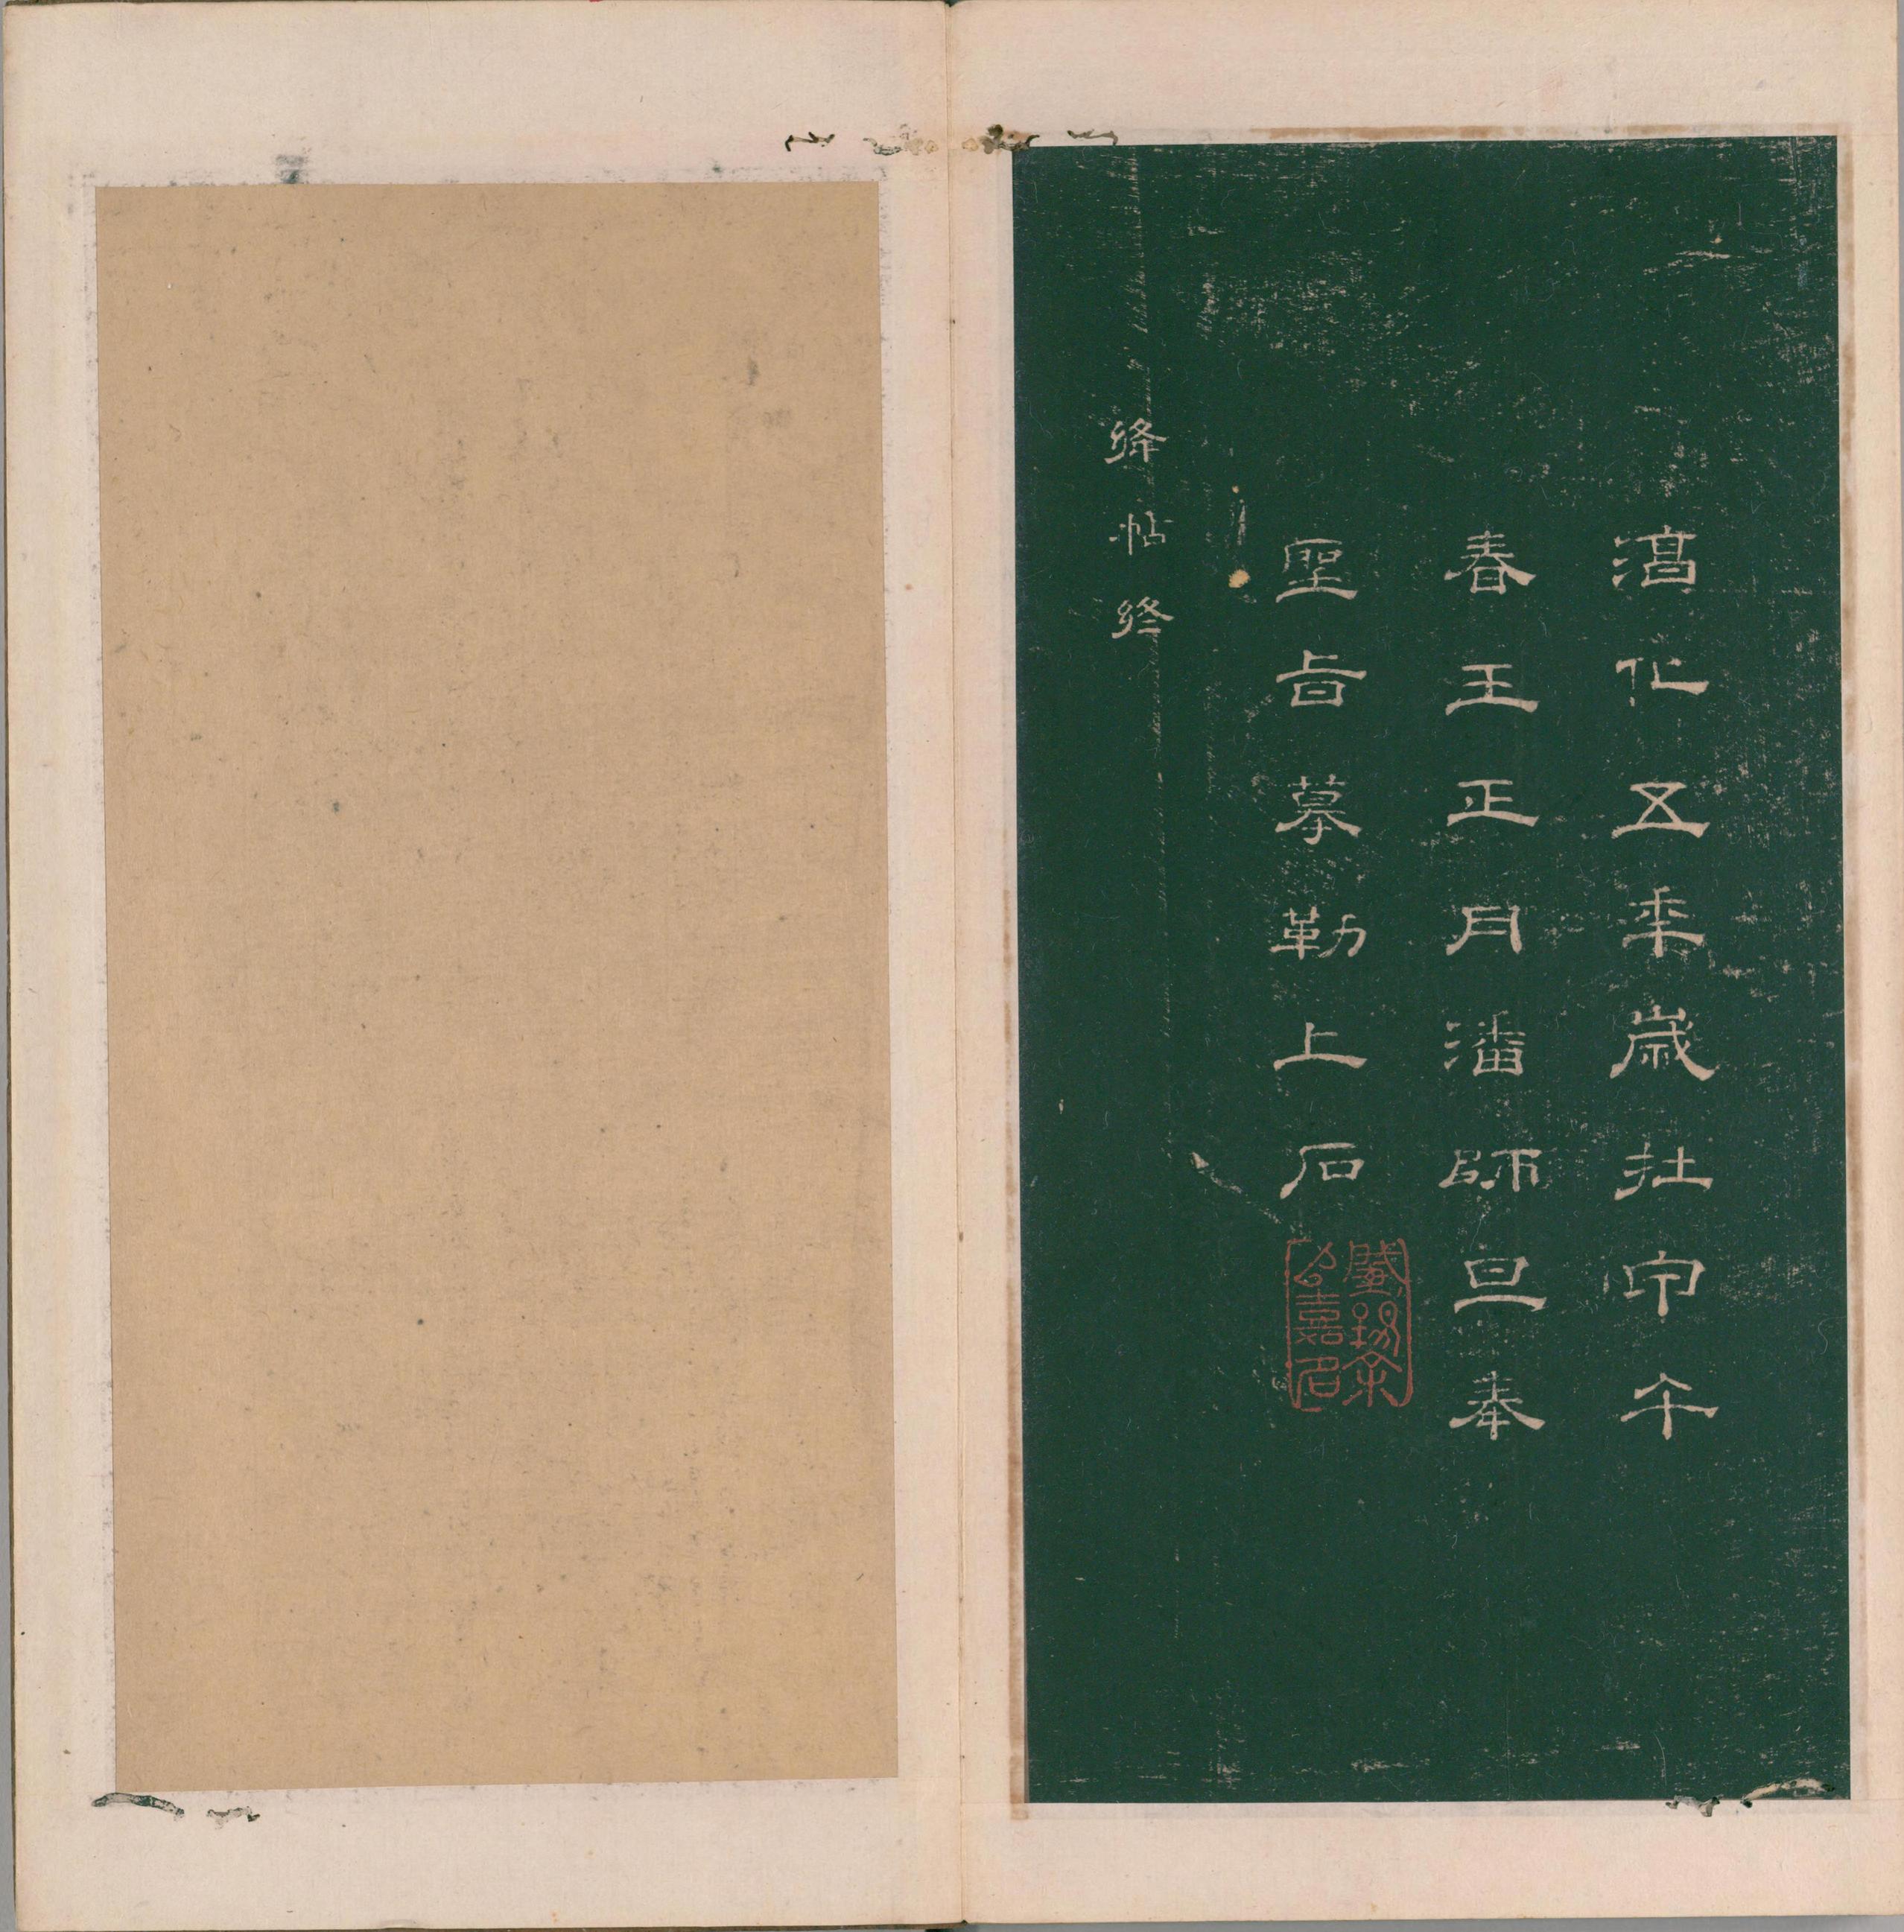 淳化五年歲在甲午
春王正月潘師旦奉
聖旨摹勒上石
絳帖終
肇錫余
以嘉名